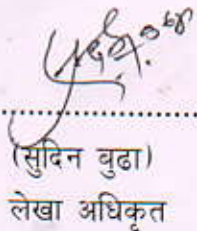 (सुदिन बुढा)
लेखा अधिकृत